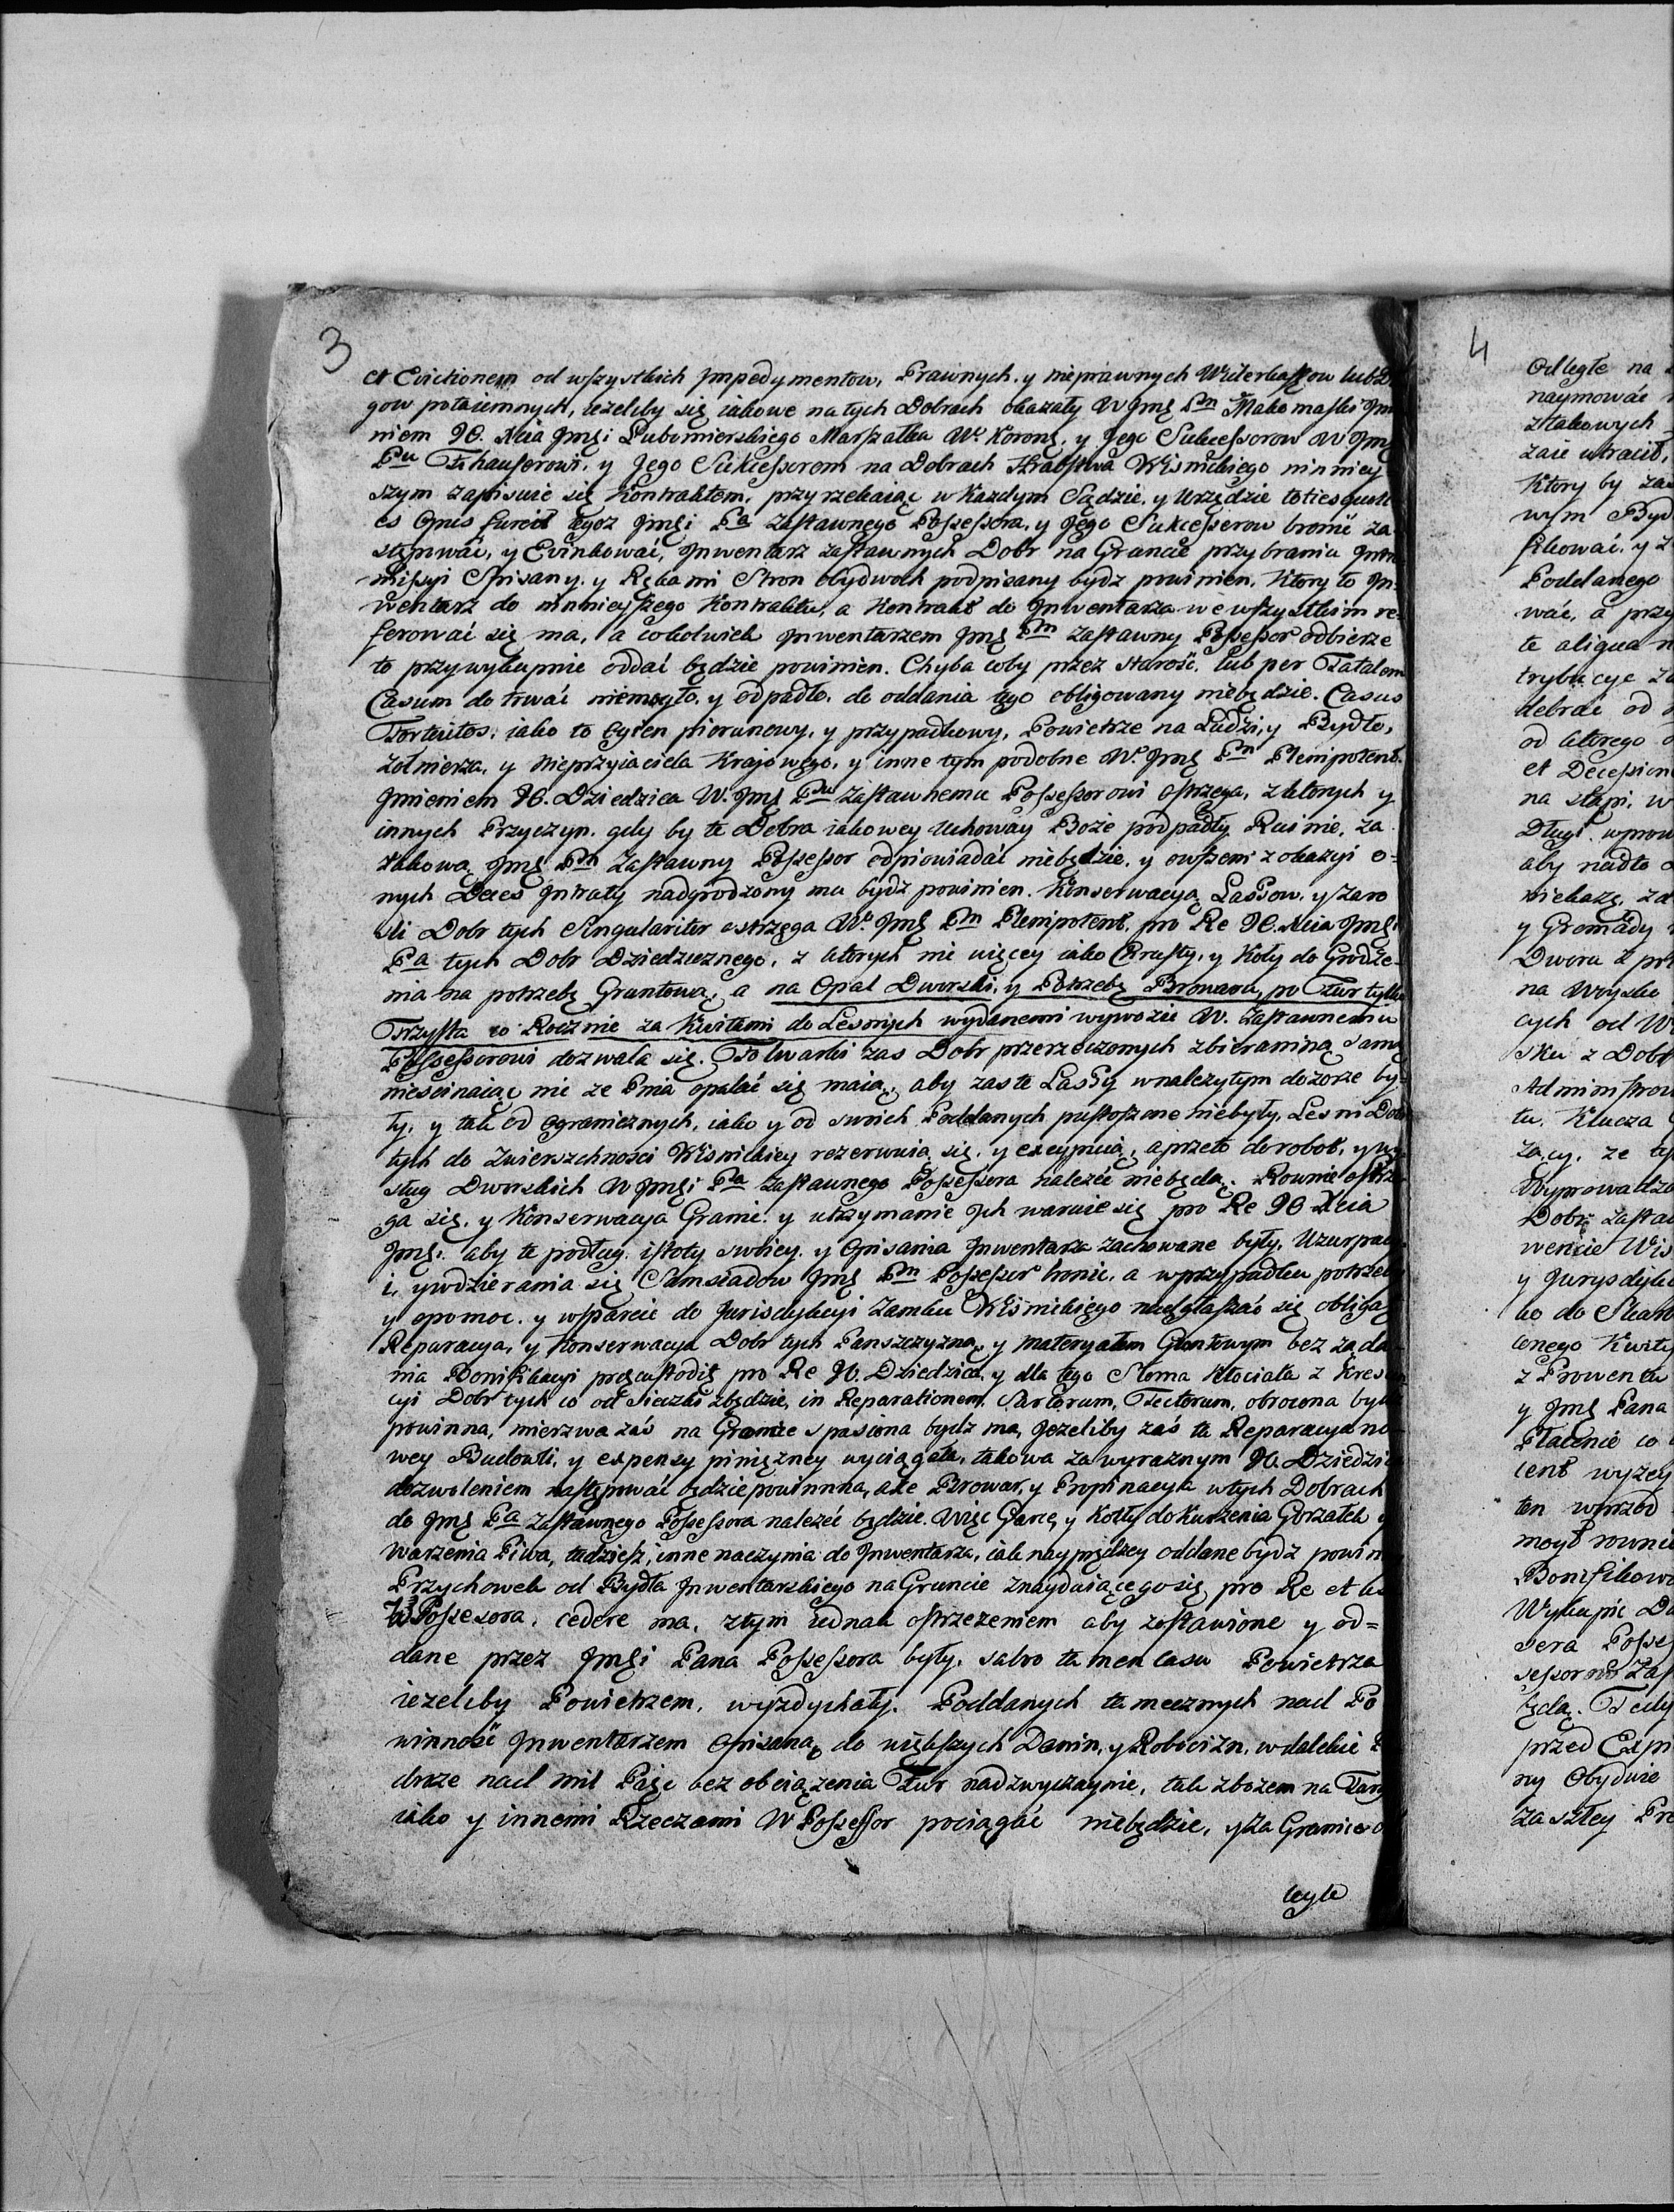 3
et Evictionem od wszystkich Jmpedymentow, Prawnych. y nieprawnych Widerkaffow lub D
gow potaiemnych, iezeliby się iakowe na tych Dobrach okazały W Jmę Pn Makomaski Jm
niem JO. Xcia Jmęi Lubomierskiego Marszałka W. Korong. y Jego Sukcessorow W Jmę
Pu Fihauserowi. y Jego Sukcessorom na Dobrach Hrabstwa Wisnickiego ninniey
szym zapisuie się Kontraktem. przyrzekaiąc w Kazdym Sądzie. y Urzędzie toties quoti
es Opus fuerit tegoz Jmęi Pa Zastawnego Possessora. y Jego Sukcesserow bronić za
stęmwać, y Evinkować, Jnwentarz Zastawnych Dobr na Gruncie przy braniu Jntro
missyi Spisany. y Rękami Stron obydwoch podpisany bydz powinien. Ktory to Jn
wentarz do ninnieyszego Kontraktu, a Kontrakt do Jnwentarza we wszystkim re
ferować się ma, a cokolwiek Jnwentarzem Jmę Pn Zastawny Possessor odbierze
to przy wykupnie oddać będzie powinien. Chyba coby przez starość. lub per Fatalem
Casum do trwać niemogło. y odpadło. do oddania tego obligowany niebędzie. Casus
Fortuitos. iako to Ogien piorunowy. y przypadkowy, Powietrze na Ludzi, y Bydło,
Zołnierza. y Nieprzyiaciela Krajowego, y inne tym podobne W. Jmę Pn Plenipotent.
Jmieniem JO. Dziedzica W. Jmę Pu Zastawnemu Possessorowi ostrzega, z ktorych y
innych Przyczyn. gdy by te Dobra iakowey Uchoway Boże podpadły Ruinie, za
takową Jmę Pn Zastawny Possessor odpowiadać niebędzie. y owszem z okazyi o=
nych Deces Jntraty nadgrodzony mu bydź powinien. Konserwacyą Lassow. y Zaro
śli Dobr tych Singulariter ostrzęga W. Jmę Pn Plenipotent. pro Re JO. Xcia Jmęi
Pa tych Dobr Dziedzicznego, z ktorych nie więcey iako Chrusty, y Koły do Grodze-
nia na potrzebę Gruntową, a na Opał Dworski, y Potrzebę Browaru, po Fur tylko
Trzysta co Rocznie za Kwitami do Lesnych wydanemi wywozic W. Zastawnemu
Possessorowi dozwala się. Folwarki zas Dobr przerzeczonych zbieraniną samą
niescinaiąc nic ze Pnia opalać się maią, aby zas te Lassy w nalezytym dozorze by=
ły. y tak od ogranicznych, iako y od swoich Poddanych pustoszone niebyły, Lesni Dobr
tych do Zwierszchności Wisnickiey rezerwuią się. y excypuią, a przeto do robot, y wy
sług Dworskich W Jmęi Pa Zastawnego Possessora nalezeć niebędą. Rownie ostrze
ga się. y Konserwacya Granic. y utrzymanie Jch waruie się pro Re JO Xcia
Jmęi. aby te podług. istoty swoiey. y Opisania Jnwentarza zachowane były. Uzurpac
i, y wdzierania się Samsiadow Jmę Pn Possessor bronic. a w przypadku potrzeby
y o pomoc. y wsparcie do Jurisdykcyi Zamku Wisnickiego nadgłaszać się obliga
Reparacya, y Konserwacya Dobr tych Panszczyzną, y Materyałem Gruntowym bez żąda
nia Bonifikacyi pręcustodit pro Re JO. Dziedzica, y dla tego Słoma Kłociata z Kresce
cyi Dobr tych co od Sieczki zbędzie, in Reparationem Sartorum, Tectorum, obrocona być
powinna, mierzwa zaś na Gruncie spasiona bydz ma, Jezeliby zaś ta Reparacya no
wey Budowli, y expensy pinięzney wyciągała, takowa za wyraznym JO. Dziedzica
dozwoleniem nastęmwać będzie powinnna, ale Browar, y Propinacya w tych Dobrach
do Jmę Pa Zastawnego Possessora nalezeć będzie. Więc Garce, y Kotły do Kurzenia Gorzałek y
Warzenia Piwa, tudziesz, inne naczynia do Jnwentarza, iak nayprędzey oddane bydz powin
Przychowek od Bydła Jnwentarskiego na Gruncie znayduiącego się pro Re et us
W Possesora. cedere ma. z tym iednak ostrzezeniem aby zostawione y od=
dane przez Jmęi Pana Possessora były. salvo tamen casu Powietrza
iezeliby Powietrzem, wyzdychały. Poddanych tamecznych nad Po
winność Jnwentarzem Opisaną do większych Danin, y Robocizn, w dalekie P
droze nad mil Pięc bez obciązenia Fur nadzwyczaynie, tak zbozem na Targ
iako y innemi Rzeczami W Possessor pociągać niebędzie, y za Granice o
4
Odległe na
naymować
ztakowych
zaie utracił,
Ktory by za
wym Byd
fikować. y z
Poddanego
wać, a przy
te aliqua n
trybucye za
debrać od
od ktorego
et Decession
na stąpi. w
Długi. wprow
aby nadto
niekażę, za
y Gromady
Dworu z po
na Woysko
cych od W
sku z Dobr
Administrow
tu. Klucza
zący. ze ty
Wyprowadza
Dobr. Zasta
wencie Wis
y Jurysdykc
ko do Skarb
conego Kwity
z Prowentu
y Jmę Pana
Płacenie co
cent wyzey
ten wprzod
mogł rownie
Bonifikowa
Wykupic Do
sera Posse
sessorowi Zas
będą. Tedy
przed Expi
ny Obydwie
zaszłey Pre